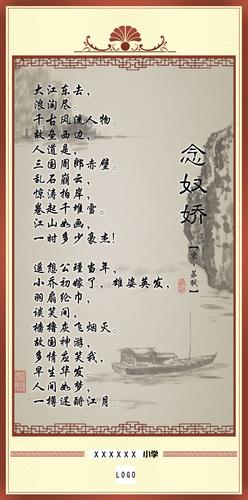 念奴娇
【宋·苏轼】
大江东去,
浪淘尽。
千古风流人物。
故垒西边,
人道是,
三国周郎赤壁。
乱石崩云,
惊涛拍岸,
卷起千堆雪。
江山如画,
一时多少豪杰!
遥想公瑾当年,
小乔初嫁了,雄姿英发,
羽扇纶巾,
谈笑间,
樯橹灰飞烟灭。
故国神游,
多情应笑我,
早生华发。
人间如梦,
一樽还酹江月。
XXXXXX 小学
LOGO